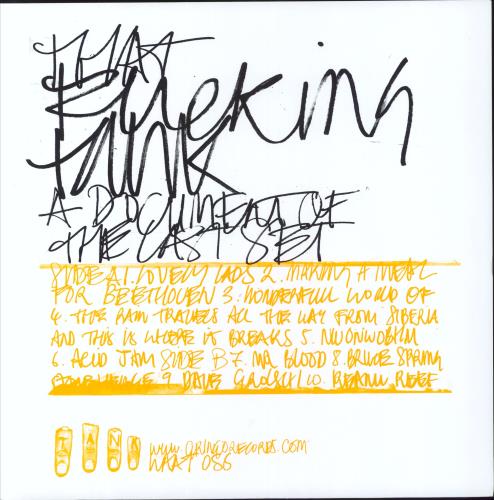 THAT
Fucking
TANK
A DOCUMENT OF
THE LAST SET
SIDE A 1. LOVELY LADS 2. MAKING A MEAL
FOR BEETHOVEN 3. WONDERFUL WORLD OF
4. THE RAIN TRAVELS ALL THE WAY FROM SIBERIA
AND THIS IS WHERE IT BREAKS 5. NWONWOBLM
6. ACID JAM SIDE B 7. MR BLOOD 8. BRUCE SPRING
STONEHENGE 9. DAVE GROLSCH 10. KEANU REEF
TANK
www.GRINGORECORDS.COM
WAAT 056